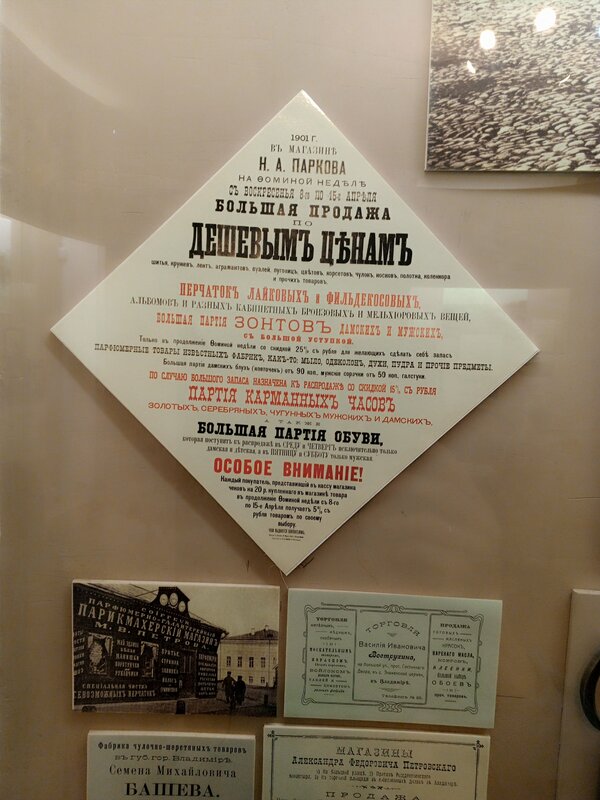 1901 Г.
ВЪ МАГАЗИНѢ
Н. А. ПАРКОВА
НА ѲОМИНОЙ НЕДѢЛѢ
СЪ ВОСКРЕСЕНЬЯ 8-го ПО 15-е АПРѢЛЯ
БОЛЬШАЯ ПРОДАЖА
ПО
ДЕШЕВЫМЪ ЦѢНАМЪ
шитья, кружевъ, лентъ, аграмантовъ, вуалей, пуговицъ, цвѣтовъ, корсетовъ, чулокъ, носковъ, полотна, коленкора
и прочихъ товаровъ.
ПЕРЧАТОКЪ ЛАЙКОВЫХЪ и ФИЛЬДЕКОСОВЫХЪ,
АЛЬБОМОВЪ И РАЗНЫХЪ КАБИНЕТНЫХЪ БРОНЗОВЫХЪ И МЕЛЬХІОРОВЫХЪ ВЕЩЕЙ,
БОЛЬШАЯ ПАРТІЯ ЗОНТОВЪ ДАМСКИХЪ И МУЖСКИХЪ,
СЪ БОЛЬШОЙ УСТУПКОЙ.
Только въ продолженіе Ѳоминой недѣли со скидкой 25% съ рубля для желающихъ сдѣлать себѣ запасъ
ПАРФЮМЕРНЫЕ ТОВАРЫ ИЗВѢСТНЫХЪ ФАБРИКЪ, КАКЪ-ТО: МЫЛО, ОДЕКОЛОНЪ, ДУХИ, ПУДРА И ПРОЧІЕ ПРЕДМЕТЫ.
Большая партія дамскихъ блузъ (кофточекъ) от 90 коп. мужскія сорочки от 59 коп. галстухи.
ПО СЛУЧАЮ БОЛЬШОГО ЗАПАСА НАЗНАЧЕНА КЪ РАСПРОДАЖѢ СО СКИДКОЙ 15% СЪ РУБЛЯ
ПАРТІЯ КАРМАННЫХЪ ЧАСОВЪ
ЗОЛОТЫХЪ, СЕРЕБРЯНЫХЪ, ЧУГУННЫХЪ МУЖСКИХЪ И ДАМСКИХЪ,
А ТАКЖЕ
БОЛЬШАЯ ПАРТІЯ ОБУВИ,
которая поступитъ къ распродажѣ въ СРЕДУ и ЧЕТВЕРГЪ исключительно только
дамская и дѣтская, а въ ПЯТНИЦУ и СУББОТУ только мужская
ОСОБОЕ ВНИМАНІЕ!
Каждый покупатель, представившій въ кассу магазина
чековъ на 20 р. купленнаго въ магазинѣ товара
въ продолженіе Ѳоминой недѣли съ 8-го
по 15-е Апрѣля получаетъ 5% съ
рубля товаромъ по своему
выбору.
ПАРФЮМЕРНО-ГАЛАНТЕРЕЙНЫЙ
ПАРИКМАХЕРСКІЙ МАГАЗИНЪ
М. В. ПЕТРОВА
СПЕЦІАЛЬНАЯ ЧИСТКА
ТОРГОВЛЯ
ТОРГОВЛЯ
Василія Ивановича
Вострухина,
въ Владимірѣ.
ПРОДАЖА
КРАСОКЪ,
ВАРЕНАГО МАСЛА,
ОБОЕВЪ
Фабрика чулочно-перчатныхъ товаровъ
въ губ. гор. Владимірѣ.
Семена Михайловича
БАШЕВА.
МАГАЗИНЫ
Александра Федоровича Петровскаго
ПРОДАЖА